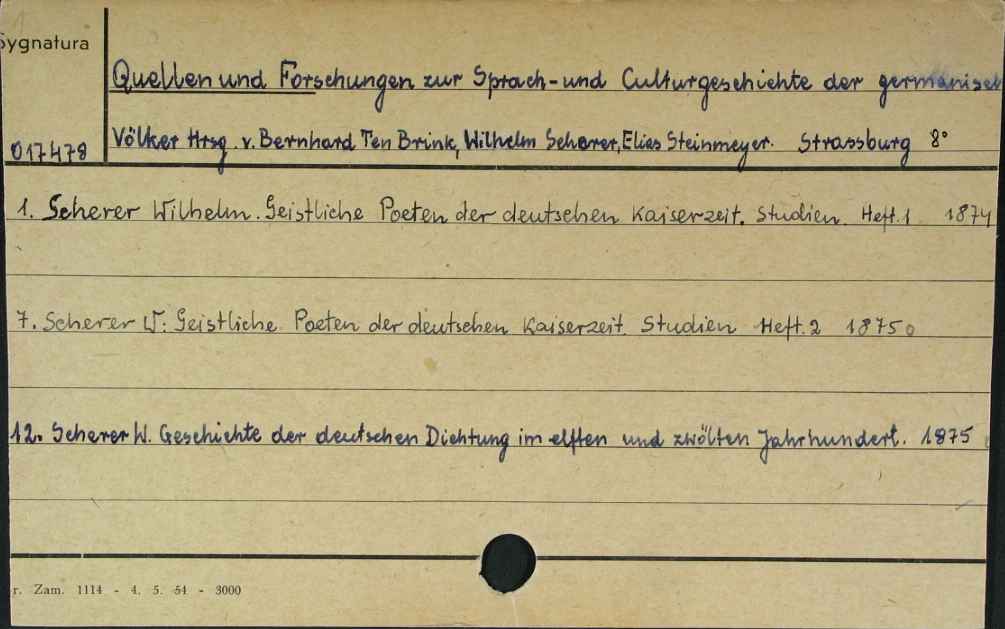 Sygnatura
Quellen und Forschungen zur Sprach- und Culturgeschichte der germanisch
017478
Völker Hrsg. v. Bernhard Ten Brink, Wilhelm Scherer, Elias Steinmeyer. Strassburg 8°
1. Scherer Wilhelm. Geistliche Poeten der deutschen Kaiserzeit. Studien. Heft.1 1874
7. Scherer W. Geistliche Poeten der deutschen Kaiserzeit. Studien Heft.2 1875.
12. Scherer W. Geschichte der deutschen Dichtung im elften und zwölten Jahrhundert. 1875
r. Zam. 1114 - 4. 5. 54 - 3000